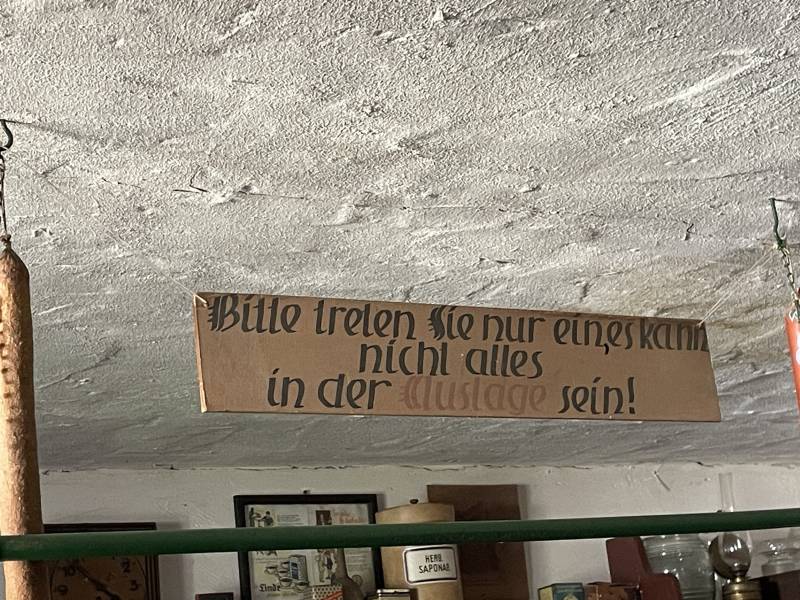 Bitte treten Sie nur ein, es kann
nicht alles
in der Auslage sein!
Linde
HERB.
SAPONAR.
10
2
3